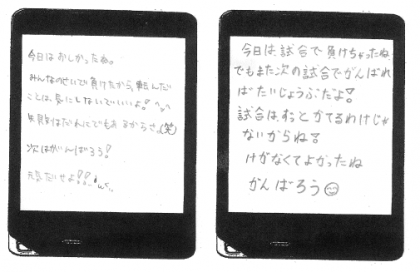 今日はおしかったね。
みんなのせいで負けたから、転んだ
ことは気にしないでいいよ！^_^
失敗はだれにでもあるからさ(笑)
次はがんばろう！
元気だせよ！！
今日は試合で負けちゃったね
でもまた次の試合でがんばれ
ばだいじょうぶだよ！
試合はずっとかてるわけじゃ
ないからね！
けがなくてよかったね
がんばろう